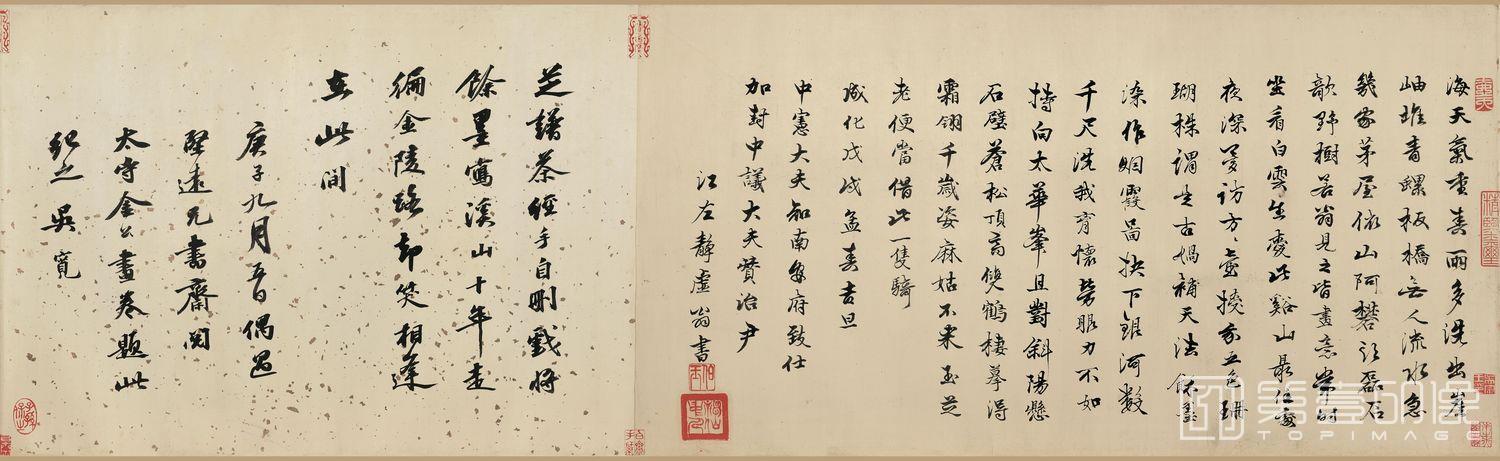 海天氣重春雨多洗出崖
岫堆青螺板橋無人流水急
幾家茅屋依山阿礬頭磊石
歊野樹若翁見之皆畫意當時
坐看白雲生此谿山最佳處
夜深夢訪方々壺授我五色珊
瑚株謂是古媧補天法餘墨
染作烟霞啚抉下銀河數
千尺洗我胷懷勞眼力不如
持向太華峯且對斜陽懸
石壁蒼松頂高雙鶴棲摹得
霜翎千歲姿麻姑不來玉芝
老便當借此一隻騎
成化戊戌孟春吉旦
中憲大夫知南安府致仕
加封中議大夫贊治尹
江左靜虛翁書
芝譜茶經手自刪戲將
餘墨寫溪山十年走
徧金陵路却笑相逢
在此間
庚子九月五日偶過
堅遠兄書齋閱
太守金公畫卷題此
紀之 吳寬
第壹印像
TOPIMAGE